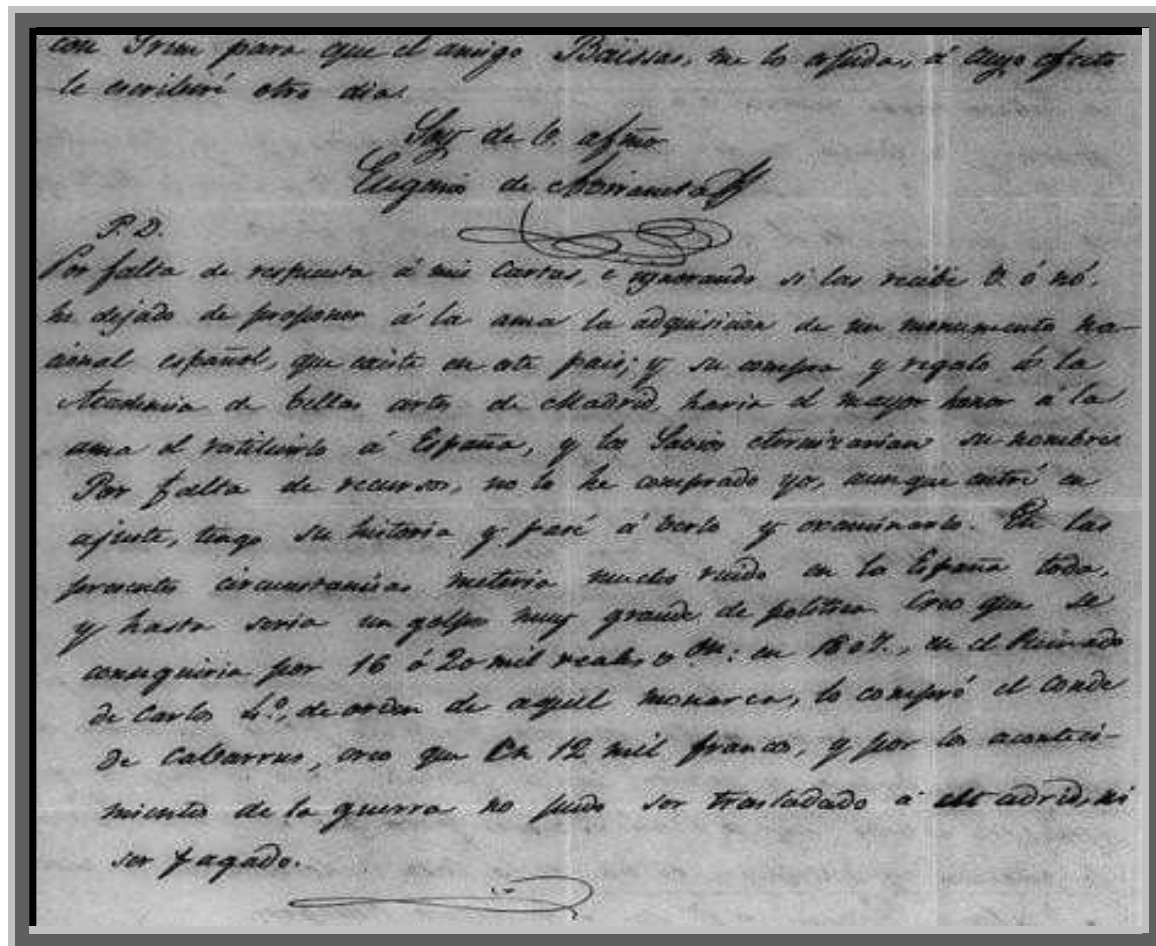 con Prim para que el amigo Baissas, me lo espida, á cuyo efecto
le escribiré otro dia.
Soy de V. afmo.
Eugenio de Aviraneta
P. D.
Por falta de respuesta á mis cartas, e ignorando si las recibe V. ó nó,
he dejado de proponer á la ama la adquisicion de un monumento na-
cional español, que existe en este pais; y su compra y regalo á la
Academia de bellas artes de Madrid, haria el mayor honor á la
ama el restituirlo á España, y los Sabios eternizarian su nombre.
Por falta de recursos, no lo he comprado yo, aunque entré en
ajuste, tengo su historia y pasé á verlo y examinarlo. En las
presentes circunstancias meteria mucho ruido en la España toda,
y hasta seria un golpe muy grande de politica. Creo que se
conseguiria por 16 ó 20 mil reales v.on: en 1807., en el Reinado
de Carlos 4.º, de orden de aquel monarca, lo compró el conde
de Cabarrus, creo que en 12 mil francos, y por los aconteci-
mientos de la guerra no pudo ser trasladado á Madrid, ni
ser pagado.